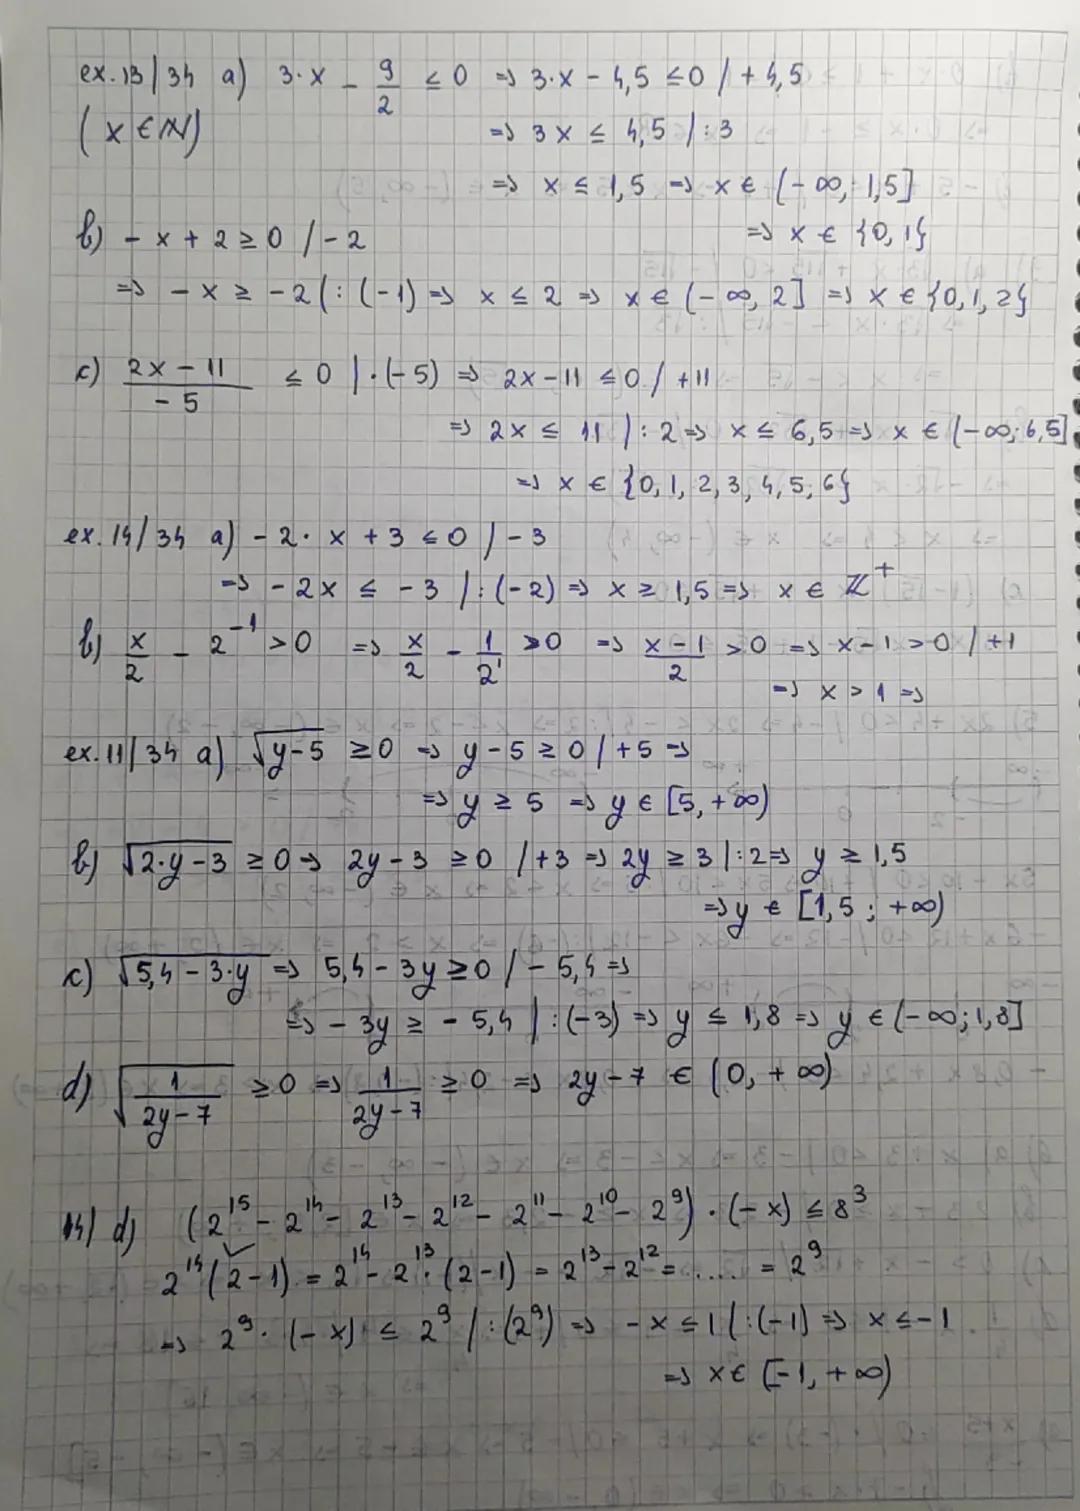 ex. 13/34 a) 3·x - 9/2 ≤ 0 => 3·x - 4,5 ≤ 0 / + 4,5
(x ∈ ℕ) => 3x ≤ 4,5 / : 3
=> x ≤ 1,5 => x ∈ (-∞, 1,5]
=> x ∈ {0, 1}
b) - x + 2 ≥ 0 / - 2
=> - x ≥ - 2 / : (-1) => x ≤ 2 => x ∈ (-∞, 2] => x ∈ {0, 1, 2}
c) (2x - 11)/(-5) ≤ 0 | · (-5) => 2x - 11 ≤ 0 / + 11
=> 2x ≤ 11 / : 2 => x ≤ 6,5 => x ∈ (-∞; 6,5]
=> x ∈ {0, 1, 2, 3, 4, 5, 6}
ex. 14/34 a) - 2 · x + 3 ≤ 0 / - 3
=> - 2x ≤ - 3 / : (-2) => x ≥ 1,5 => x ∈ ℤ⁺
b) x/2 - 2⁻¹ > 0 => x/2 - 1/2¹ > 0 => (x - 1)/2 > 0 => x - 1 > 0 / + 1
=> x > 1 =>
ex. 11/34 a) √(y - 5) ≥ 0 => y - 5 ≥ 0 / + 5 =>
=> y ≥ 5 => y ∈ [5, +∞)
b) √(2·y - 3) ≥ 0 => 2y - 3 ≥ 0 / + 3 => 2y ≥ 3 | : 2 => y ≥ 1,5
=> y ∈ [1,5 ; +∞)
c) √(5,4 - 3·y) => 5,4 - 3y ≥ 0 / - 5,4 =>
=> - 3y ≥ - 5,4 / : (-3) => y ≤ 1,8 => y ∈ (-∞; 1,8]
d) √(1/(2y - 7)) ≥ 0 => 1/(2y - 7) ≥ 0 => 2y - 7 ∈ (0, +∞)
14) d) (2¹⁵ - 2¹⁴ - 2¹³ - 2¹² - 2¹¹ - 2¹⁰ - 2⁹) · (-x) ≤ 8³
2¹⁴(2 - 1) = 2¹⁴ - 2¹³ · (2 - 1) = 2¹³ - 2¹² = ..... = 2⁹
=> 2⁹ · (-x) ≤ 2⁹ / : (2⁹) => - x ≤ 1 / : (-1) => x ≤ -1
=> x ∈ [-1, +∞)